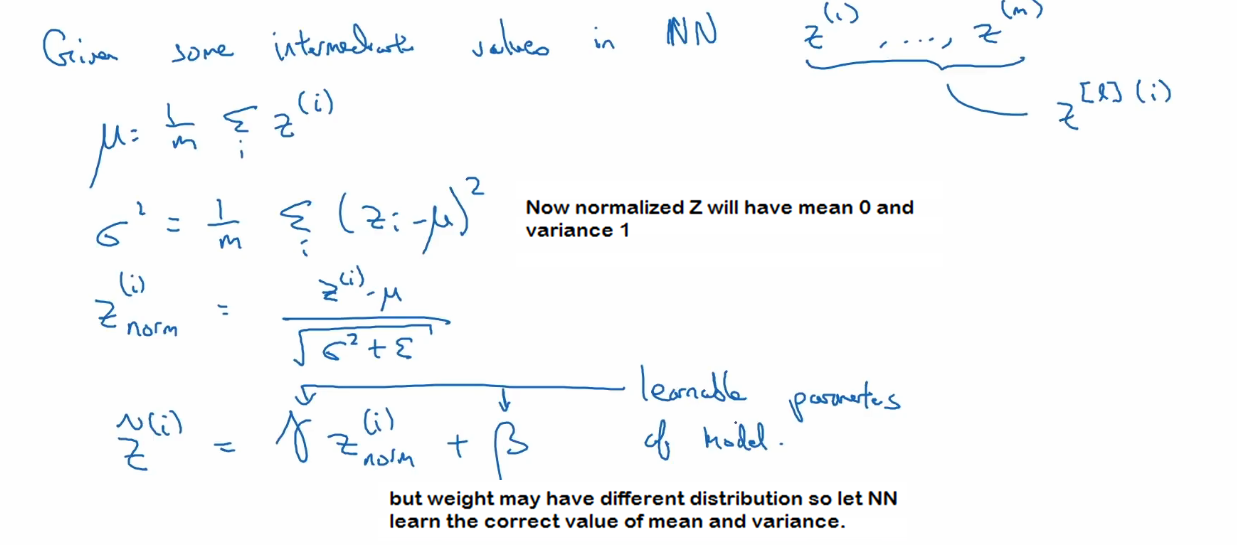 Given some intermediate values in NN z^(i), ...., z^(m)
z^[l](i)
μ = 1/m Σ_i z^(i)
σ² = 1/m Σ_i (z_i - μ)²
Now normalized Z will have mean 0 and
variance 1
z^(i)_norm = (z^(i) - μ) / √(σ² + ε)
z̃^(i) = γ z^(i)_norm + β
learnable parameters
of model.
but weight may have different distribution so let NN
learn the correct value of mean and variance.